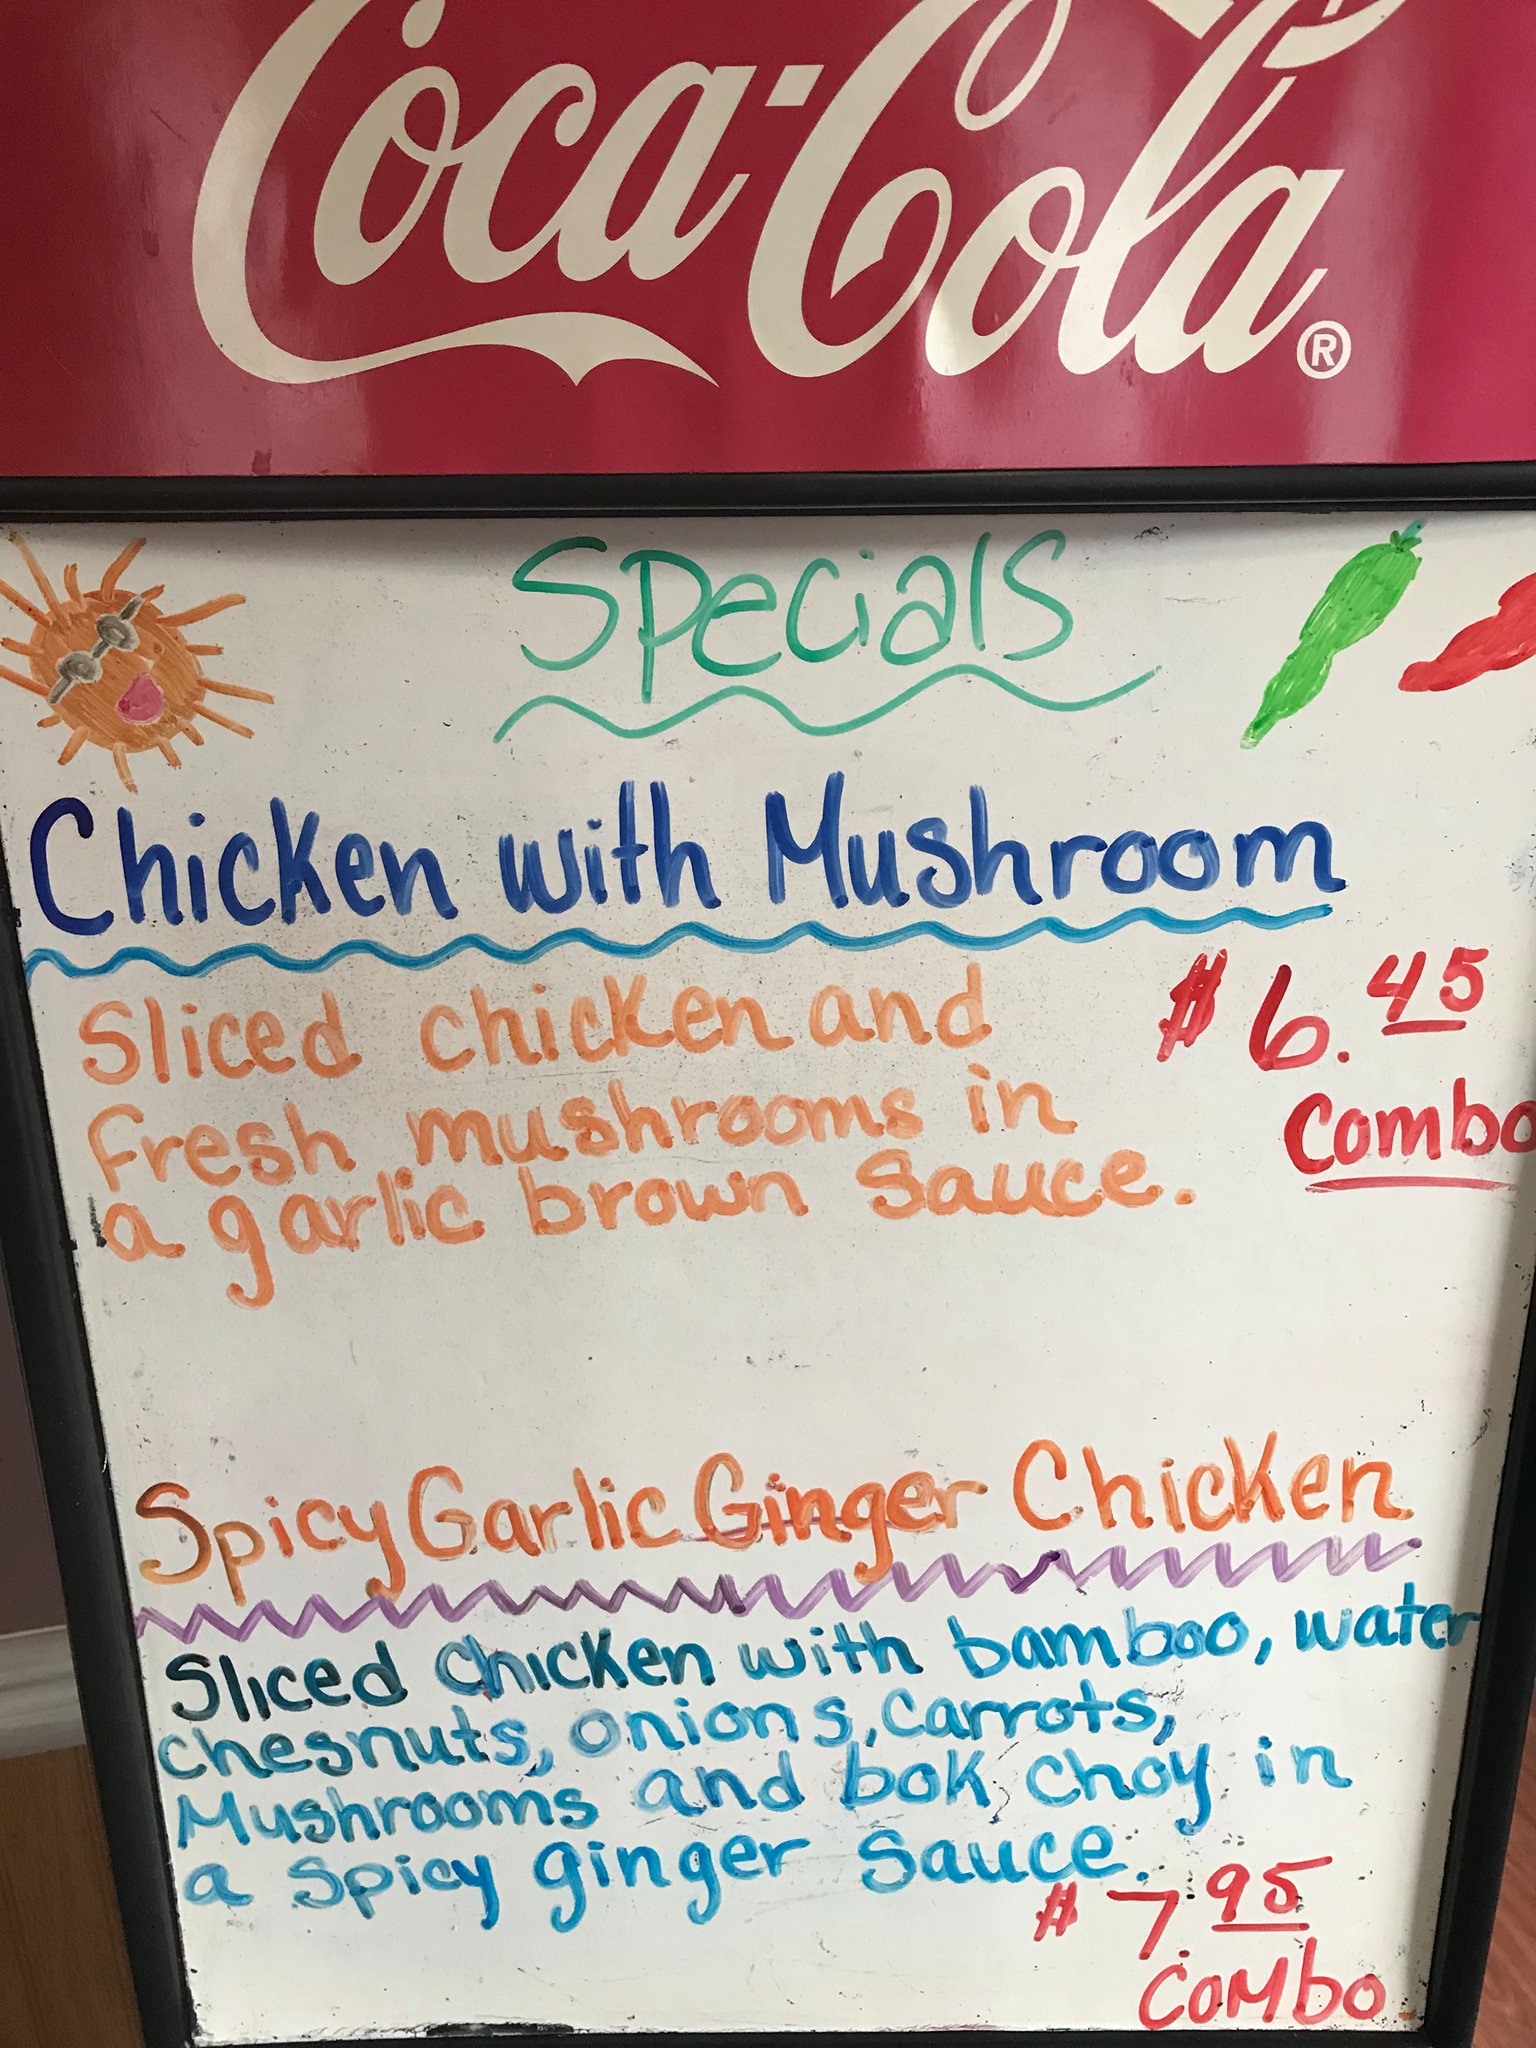 Coca-Cola®
Specials
Chicken with Mushroom
Sliced chicken and
fresh mushrooms in
a garlic brown sauce.
$6.45
Combo
Spicy Garlic Ginger Chicken
Sliced Chicken with bamboo, water
chesnuts, onions, carrots,
Mushrooms and bok choy in
a spicy ginger sauce.
$7.95
Combo